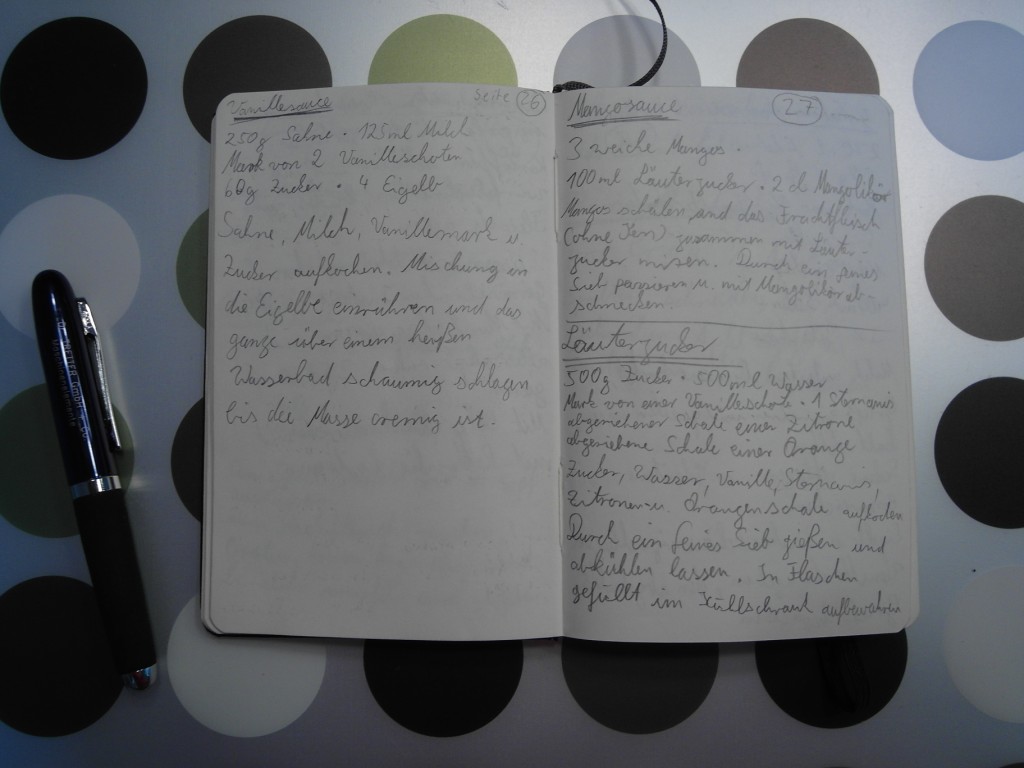 Vanillesauce Seite 26
250g Sahne · 125ml Milch
Mark von 2 Vanilleschoten
60g Zucker · 4 Eigelb
Sahne, Milch, Vanillemark u.
Zucker aufkochen. Mischung in
die Eigelbe einrühren und das
ganze über einem heißen
Wasserbad schaumig schlagen
bis die Masse cremig ist.
Mangosauce 27
3 weiche Mangos.
100ml Läuterzucker · 2 cl Mangolikör
Mangos schälen und das Fruchtfleisch
(ohne Kern) zusammen mit Läuter-
zucker mixen. Durch ein feines
Sieb passieren u. mit Mangolikör ab-
schmecken.
Läuterzucker
500g Zucker · 500ml Wasser
Mark von einer Vanilleschote · 1 Sternanis
abgeriebener Schale einer Zitrone
abgeriebene Schale einer Orange
Zucker, Wasser, Vanille, Sternanis,
Zitronen- u. Orangenschale aufkochen
Durch ein feines Sieb gießen und
abkühlen lassen. In Flaschen
gefüllt im Küllschrank aufbewahren